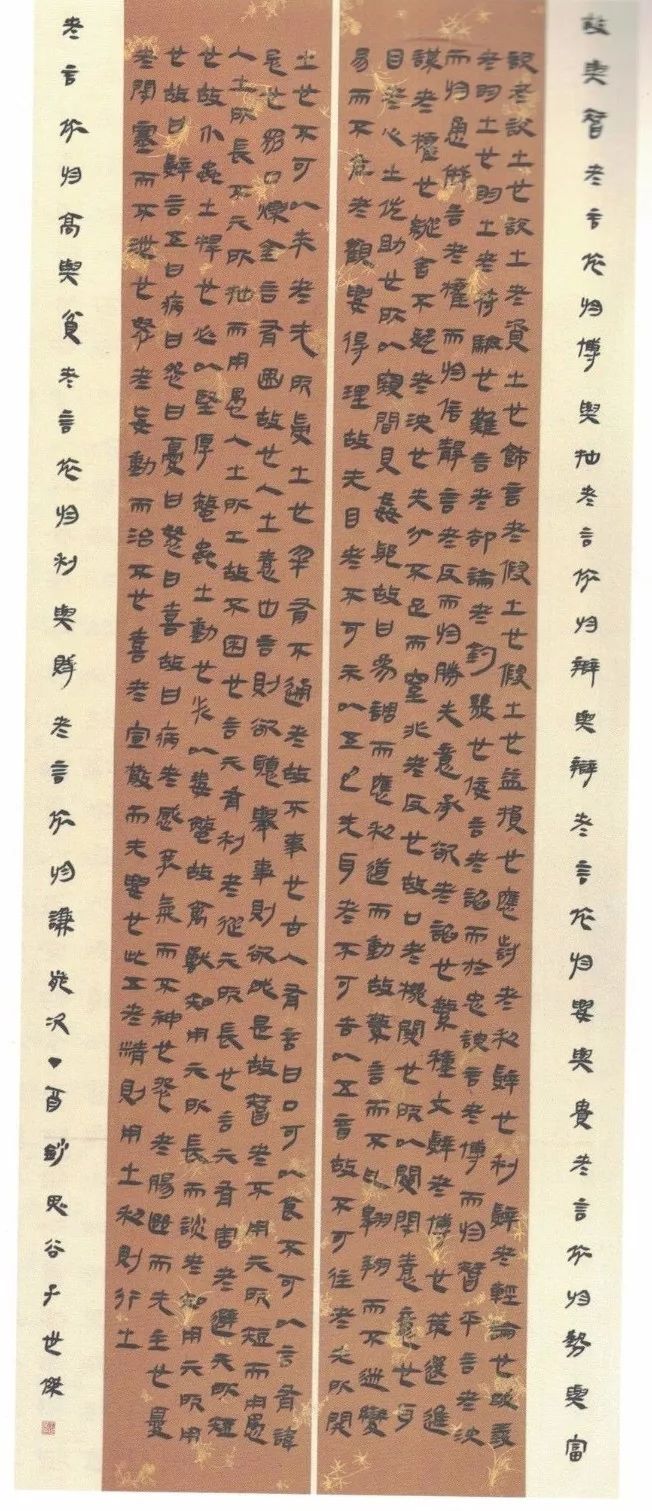 説者説之也説之者資之也飾言者假之也假之者益損也應對者利辭也利辭者輕論也成義
者明之也明之者符驗也難言者却論者釣幾也佞言者諂而於忠諛言者博而於智平言者決
而於勇戚言者權而於信靜言者反而於勝先意承欲者諂也繁種文辭者博也策選進
謀者權也縱舍不疑者決也先分不足而窒非者反也故口者機關也所以關閉情意也耳
目者心之佐助也所以窺間見姦邪故曰參調而應利道而動故繁言而不亂翱翔而不迷變
易而不危者觀要得理故无目者不可示以五色无耳者不可告以五音故不可往者无所開
之也不可以來者无所受之也物有不通者故不事也古人有言曰口可以食不可以言者諱
忌也衆口爍金言有曲故也人之情出言則欲聽舉事則欲成是故智者不用其所短而用愚
人之所長不用其所拙而用愚人之所工故不困也言其有利者從其所長也言其有害者避其所短
也故介蟲之捍也必以堅厚螫蟲之動也必以毒螫故禽獸知用其所長而談者知用其所用
也故曰辭言五曰病曰怨曰憂曰怒曰喜故曰病者感衰氣而不神也怨者腸絕而无主也憂
者閉塞而不泄也怒者妄動而治不也喜者宣散而无要也此五者精則用之利則行之
故與智者言依於博與拙者言依於辯與辯者言依於要與貴者言依於勢與富
者言依於高與貧者言依於利與賤者言依於謙 歲次丁酉鈔鬼谷子世傑